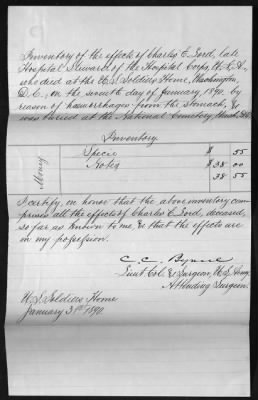 Inventory of the effects of Charles E. Lord, late
Hospital Steward of the Hospital Corps, U.S.A.,
who died at the U.S. Soldiers Home, Washington,
D.C., on the seventh day of January, 1890, by
reason of haemorrhages from the Stomach, &
was buried at the National Cemetery
Inventory
Money
Specie $ .55
Notes $ 38.00
38 .55
I certify, on honor that the above inventory com-
prises all the effects of Charles E. Lord, deceased,
so far as known to me & that the effects are
in my possession.
C. C. Byrne
Lieut. Col. & Surgeon, U.S. Army
Attending Surgeon.
U.S. Soldiers Home
January 31st 1890.